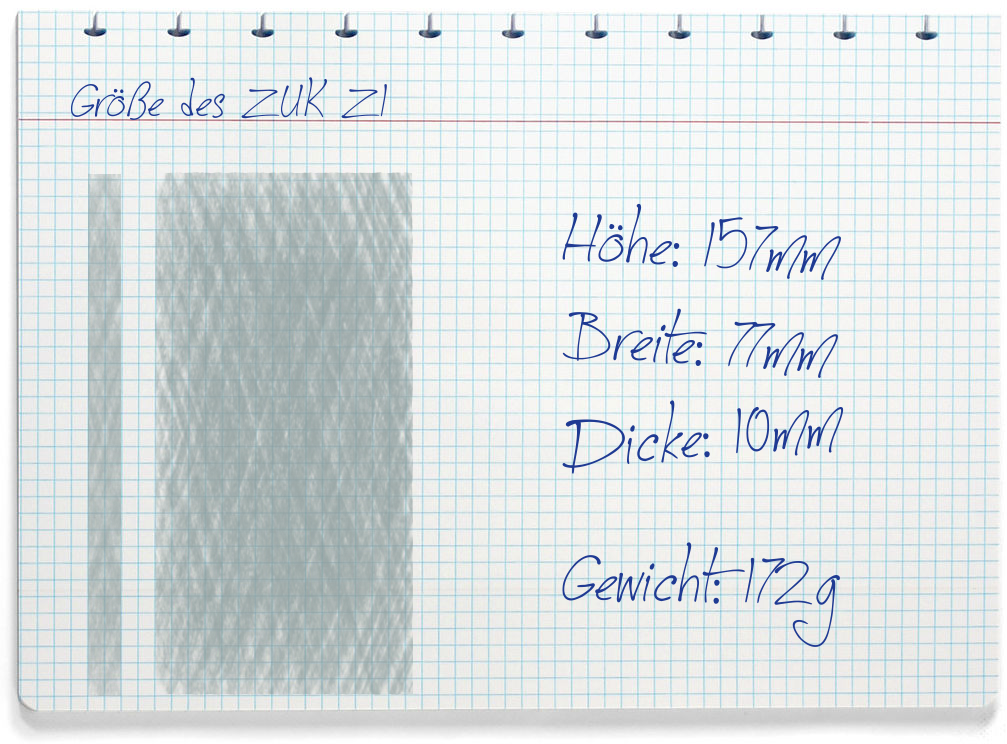 Größe des ZUK Z1
Höhe: 157mm
Breite: 77mm
Dicke: 10mm
Gewicht: 172g